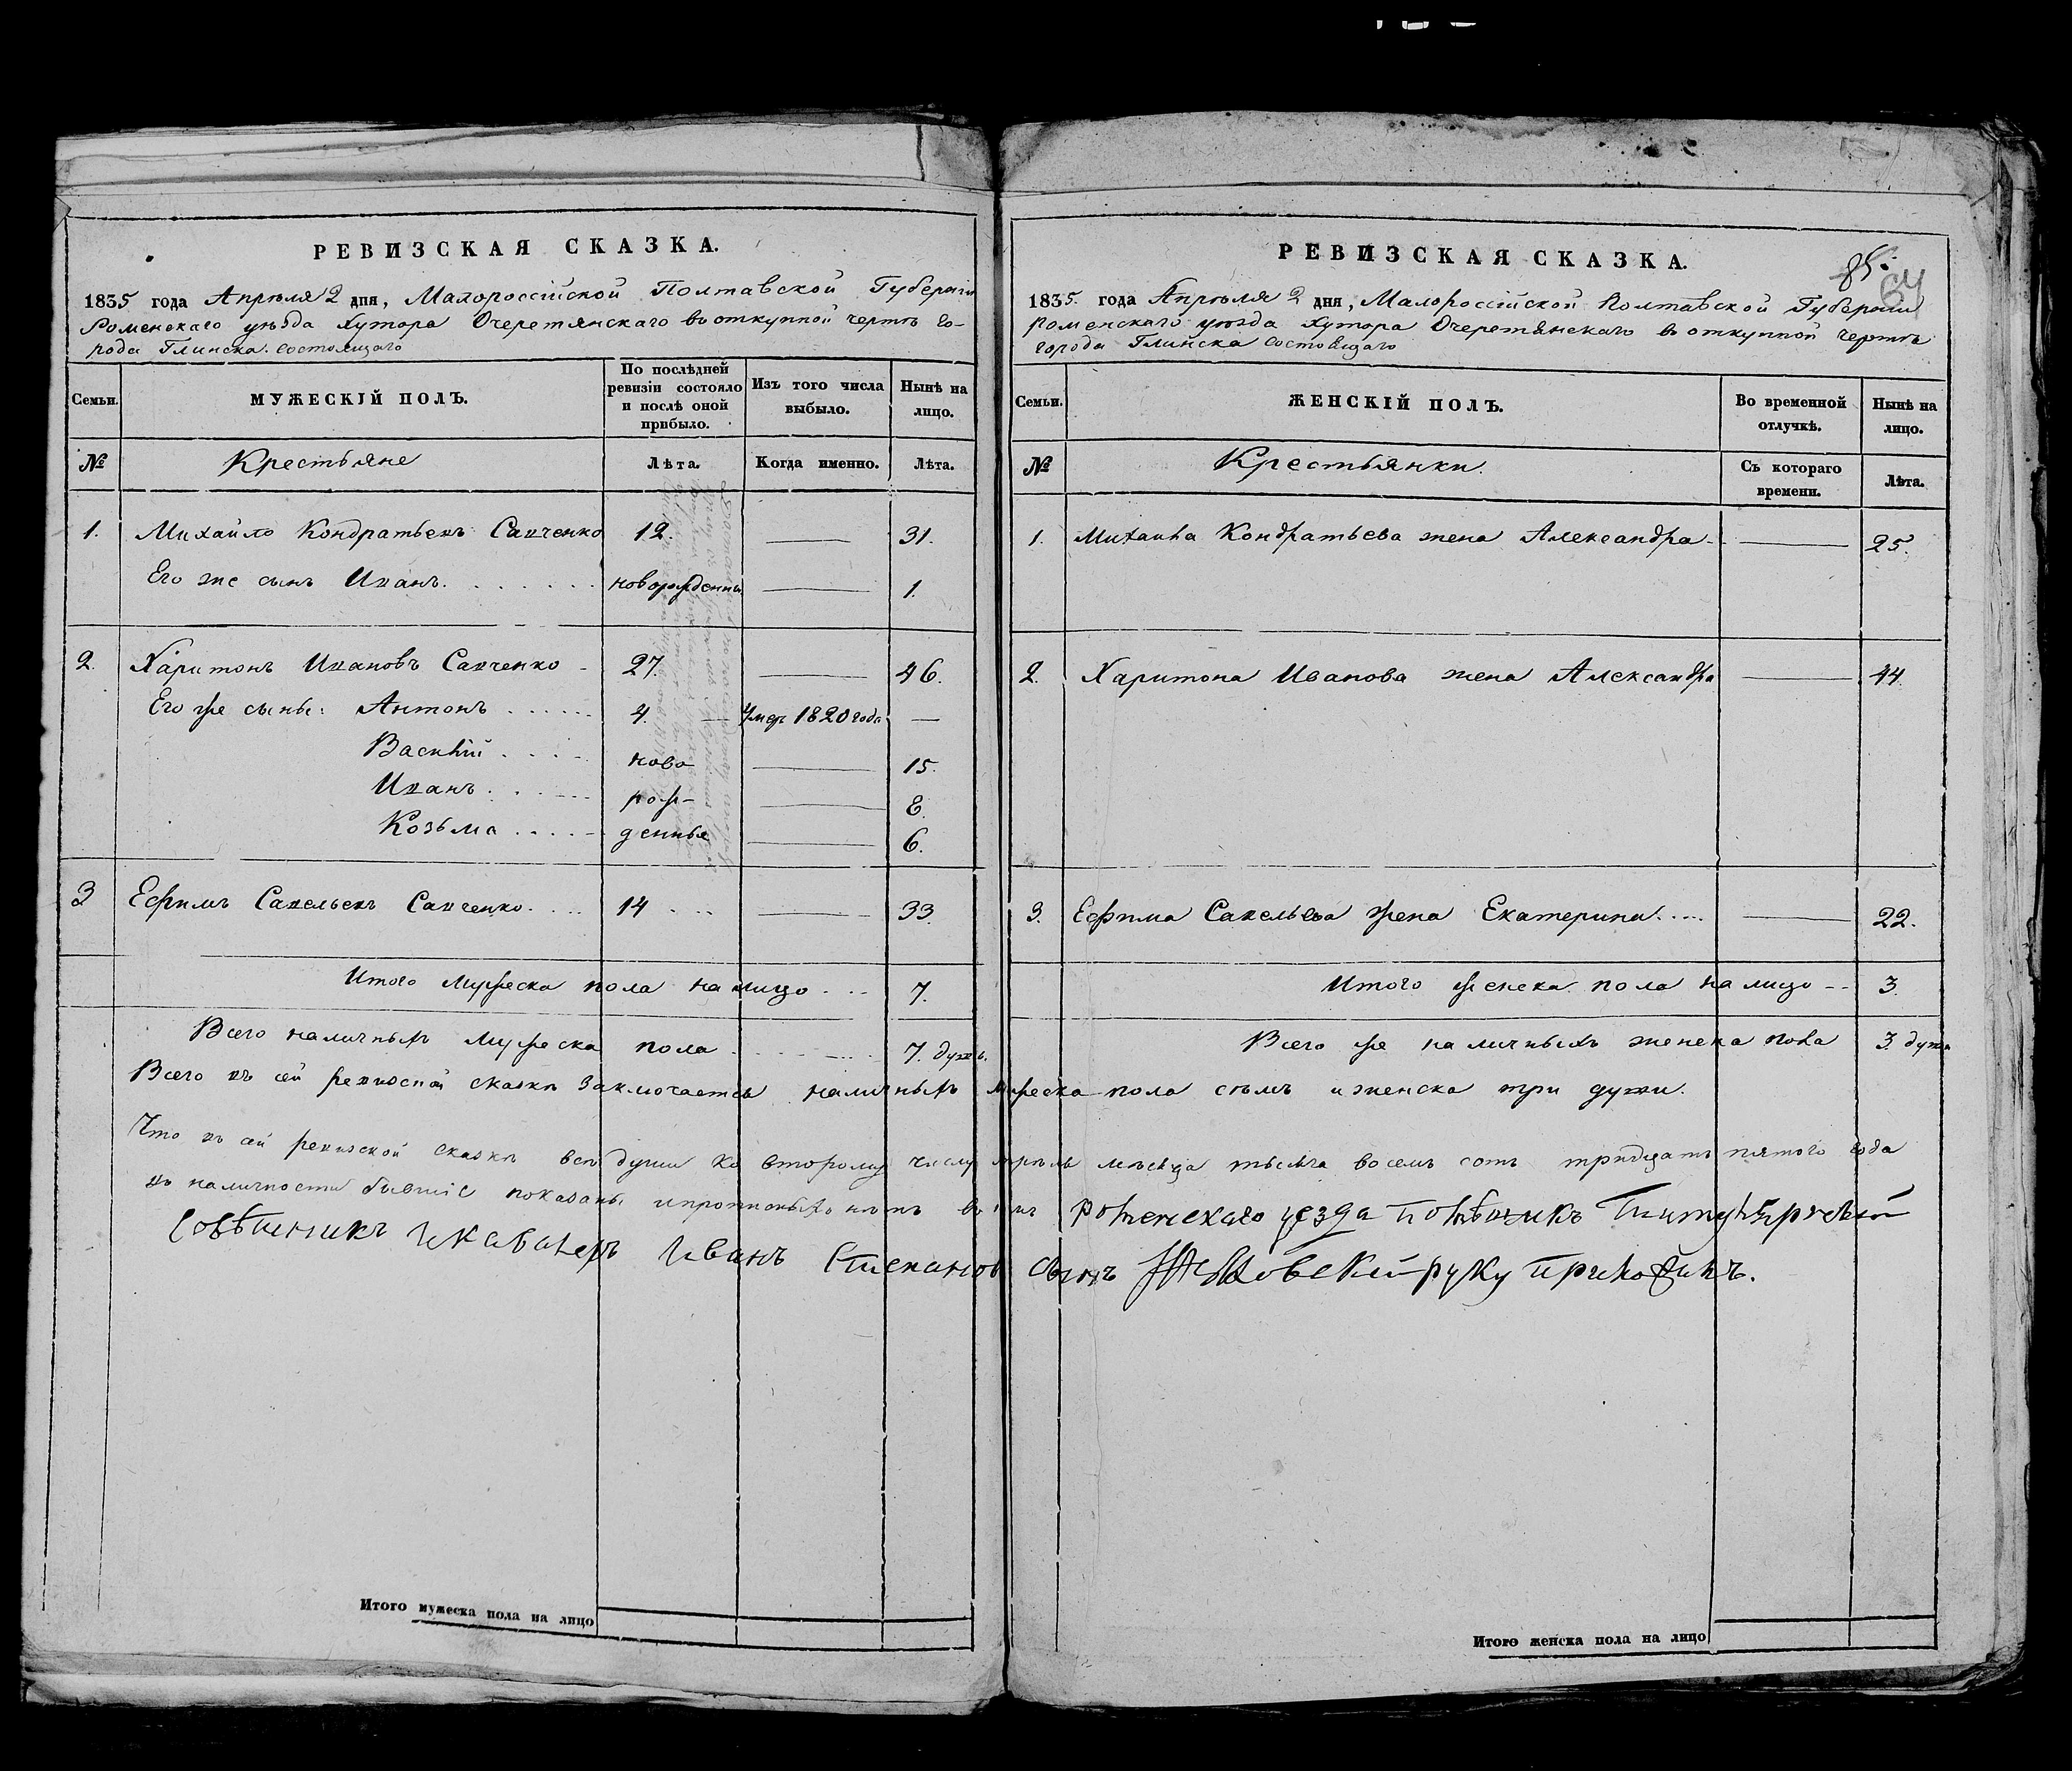 РЕВИЗСКАЯ СКАЗКА.
1835 года Апрѣля 2 дня, Малороссійской Полтавской Губерніи
Роменскаго уѣзда Хутора Очеретянскаго въ откупной чертѣ го-
рода Глинска состоящаго
Семьи.
МУЖЕСКІЙ ПОЛЪ.
По послѣдней ревизіи состояло и послѣ оной прибыло.
Изъ того числа выбыло.
Нынѣ на лицо.
№ Крестьяне Лѣта. Когда именно. Лѣта.
1. Михайло Кондратьевъ Савченко 12. 31.
Его же сынъ Иванъ новорожденный 1.
2. Харитонъ Ивановъ Савченко 27. 46.
Его же сыны: Антонъ 4. Умеръ 1820 года
Василій ново 15.
Иванъ рож- 8.
Козьма денные 6.
3 Ефимъ Савельевъ Савченко 14 33.
Итого мужеска пола на лицо 7.
Всего наличныхъ мужеска пола 7. душъ.
РЕВИЗСКАЯ СКАЗКА.
85.
1835. года Апрѣля 2 дня, Малороссійской Полтавской Губерніи
Роменскаго уѣзда Хутора Очеретянскаго въ откупной чертѣ
города Глинска состоящаго
Семьи.
ЖЕНСКІЙ ПОЛЪ.
Во временной отлучкѣ.
Нынѣ на лицо.
№ Крестьянки. Съ котораго времени. Лѣта.
1. Михаила Кондратьева жена Александра 25.
2. Харитона Иванова жена Александра 44.
3. Ефима Савельева жена Екатерина 22.
Итого женска пола на лицо 3.
Всего же наличныхъ женска пола 3. души
Всего въ сей ревизской сказкѣ заключается наличныхъ мужеска пола семъ и женска три души.
Что въ сей ревизской сказкѣ всѣ души ко второму числу апрѣля мѣсяца тысяча восемъ сотъ тридцать пятого года
въ наличности бывшіе показаны и прописныхъ нѣтъ въ томъ Роменскаго уезда помѣщикъ Титулярной
Совѣтникъ и Кавалеръ Иванъ Степановъ сынъ руку приложилъ.
Итого мужеска пола на лицо
Итого женска пола на лицо